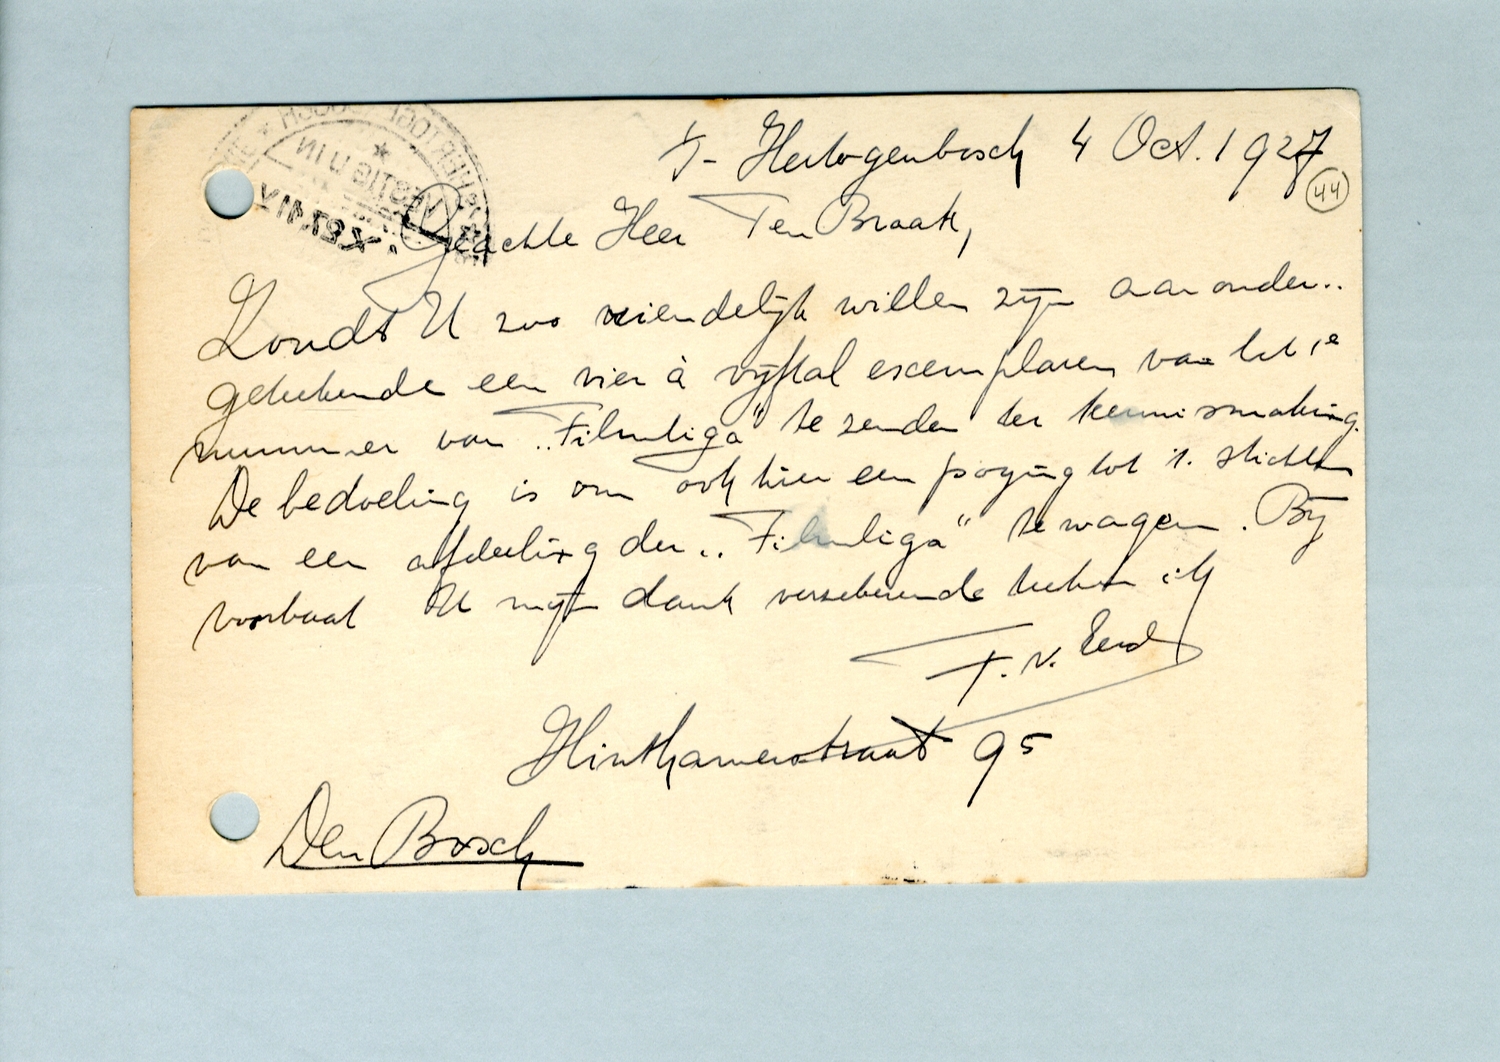 's-Hertogenbosch 4 Oct. 1927
44
Geachte Heer Ten Braak,
Zoudt U zoo vriendelijk willen zijn aan onder..
getekende een vier à vijftal exemplaren van het 1e
nummer van „Filmliga" te zenden ter kennismaking.
De bedoeling is om ook hier een poging tot 't stichten
van een afdeeling der „Filmliga" te wagen. Bij
voorbaat U mijn dank verzekerende teken ik
F. v. Eerd
Hinthamerstraat 95
Den Bosch